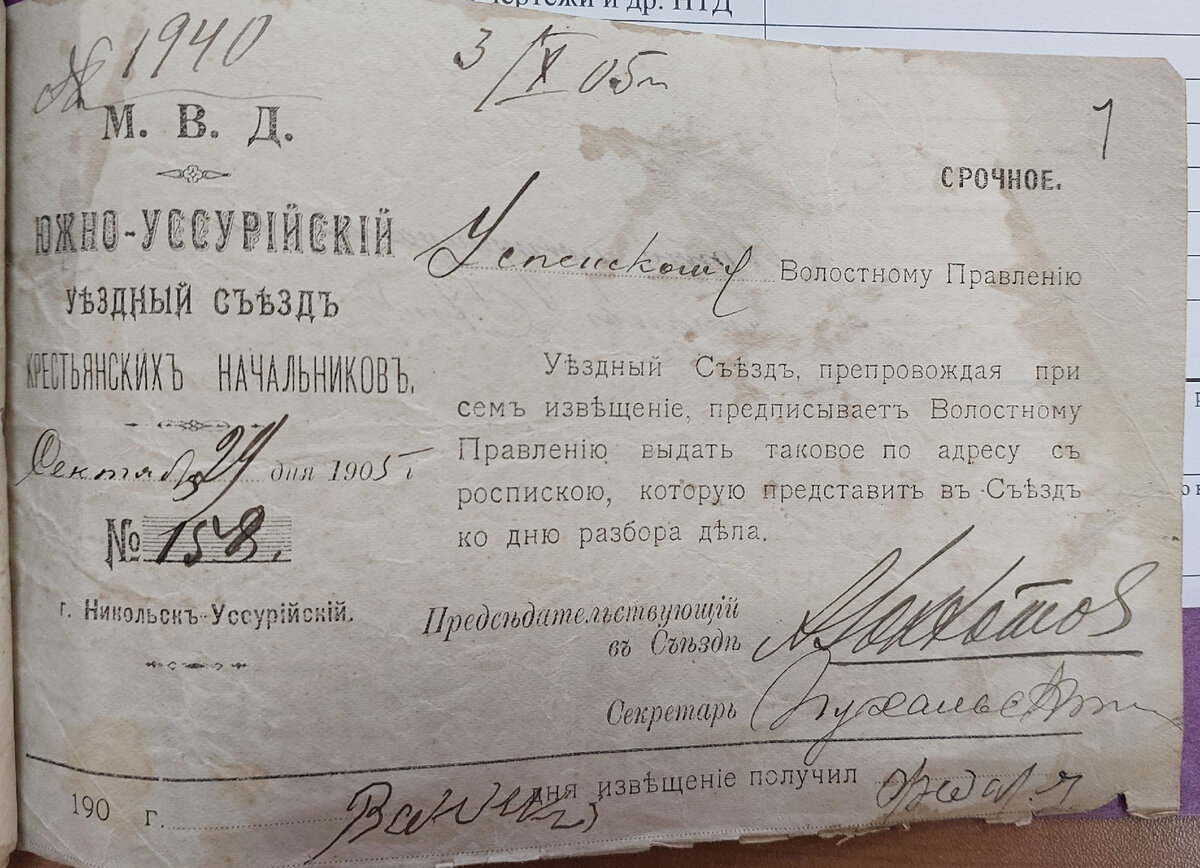 чертежи и др. НТД
№ 1940
3/X 05 г.
1
М. В. Д.
ЮЖНО-УССУРІЙСКІЙ
УѢЗДНЫЙ СЪѢЗДЪ
КРЕСТЬЯНСКИХЪ НАЧАЛЬНИКОВЪ.
Сентября 29 дня 1905 г
№ 158.
г. Никольскъ-Уссурійскій.
СРОЧНОЕ.
Успенскому Волостному Правленію
Уѣздный Съѣздъ, препровождая при
семъ извѣщеніе, предписываетъ Волостному
Правленію выдать таковое по адресу съ
роспискою, которую представить въ Съѣздъ
ко дню разбора дѣла.
Предсѣдательствующій
въ Съѣздѣ
Секретарь
190 г. дня извѣщеніе получил